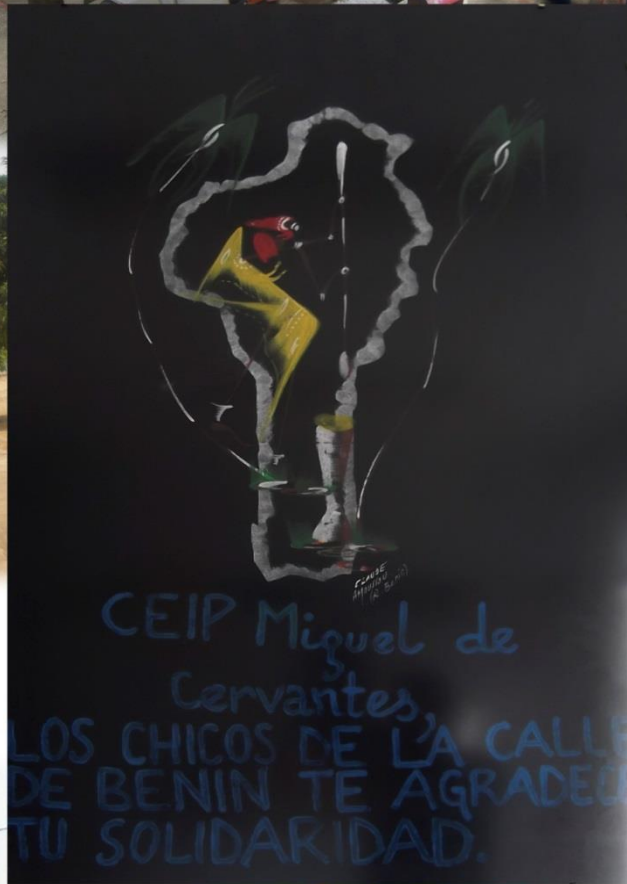 CLAUDE
CEIP Miguel de
Cervantes,
LOS CHICOS DE LA CALLE
DE BENIN TE AGRADECE
TU SOLIDARIDAD.